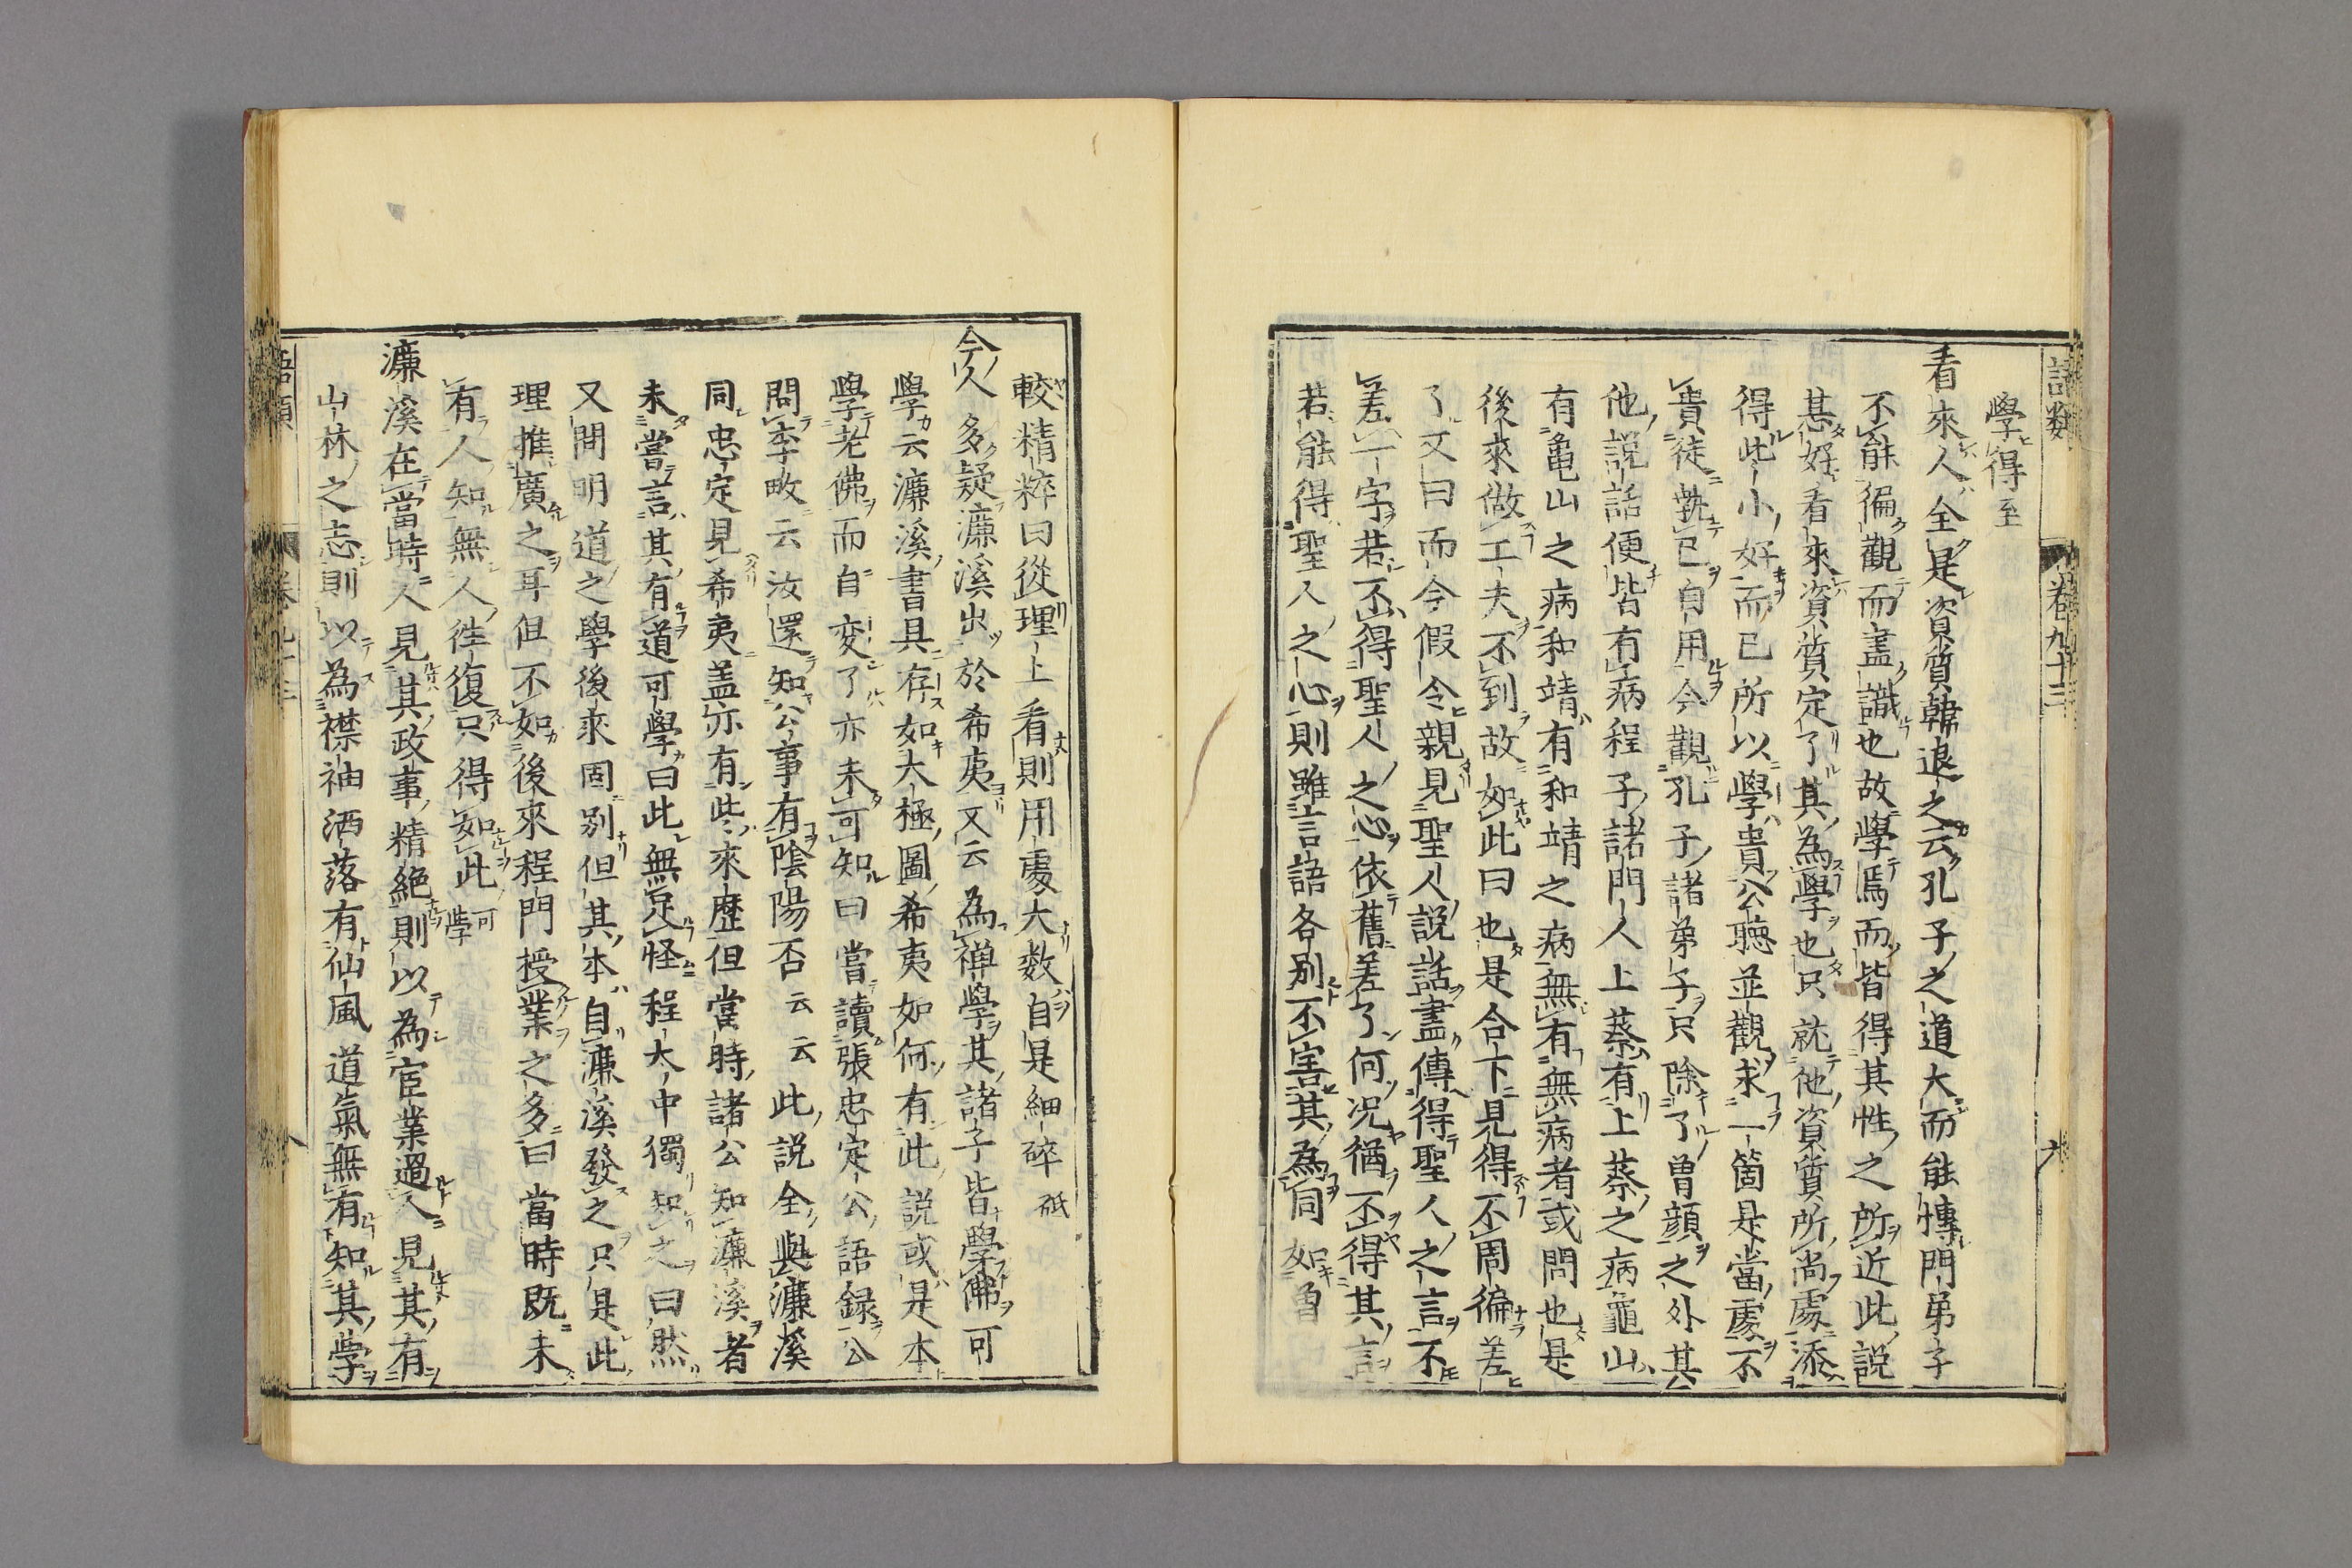 語類　卷九十三　六
學得至
看來人全是資質韓退之云孔子之道大而能博門弟子
不能徧觀而盡識也故學焉而皆得其性之所近此説
甚好看來資質定了其為學也只就他資質所尚處添
得些小好而已所以學貴公聽並觀求一箇是當處不
貴徒執已自用今觀孔子諸弟子只除了曾顔之外其
他説話便皆有病程子諸門人上蔡有上蔡之病龜山
有龜山之病和靖有和靖之病無有無病者或問也是
後來做工夫不到故如此曰也是合下見得不周徧差
了又曰而今假令親見聖人説話盡傳得聖人之言不
差一字若不得聖人之心依舊差了何况猶不得其言
若能得聖人之心則雖言語各别不害其為同如曾
較精粹曰從理上看則用處大数自是細碎砥
今人多疑濂溪出於希夷又云為禅學其諸子皆學佛可
學云濂溪書具存如太極圖希夷如何有此説或是本
學老佛而自変了亦未可知曰嘗讀張忠定公語録公
問李畋云汝還知公事有陰陽否云云此説全與濂溪
同忠定見希夷盖亦有些來歴但當時諸公知濂溪者
未嘗言其有道可學曰此無足怪程太中獨知之曰然
又問明道之學後來固别但其本自濂溪發之只是此
理推廣之耳但不如後來程門授業之多曰當時既未
有人知無人徃復只得如此可學
濂溪在當時人見其政事精絶則以為宦業過人見其有
山林之志則以為襟袖洒落有仙風道氣無有知其學
語類　卷九十三